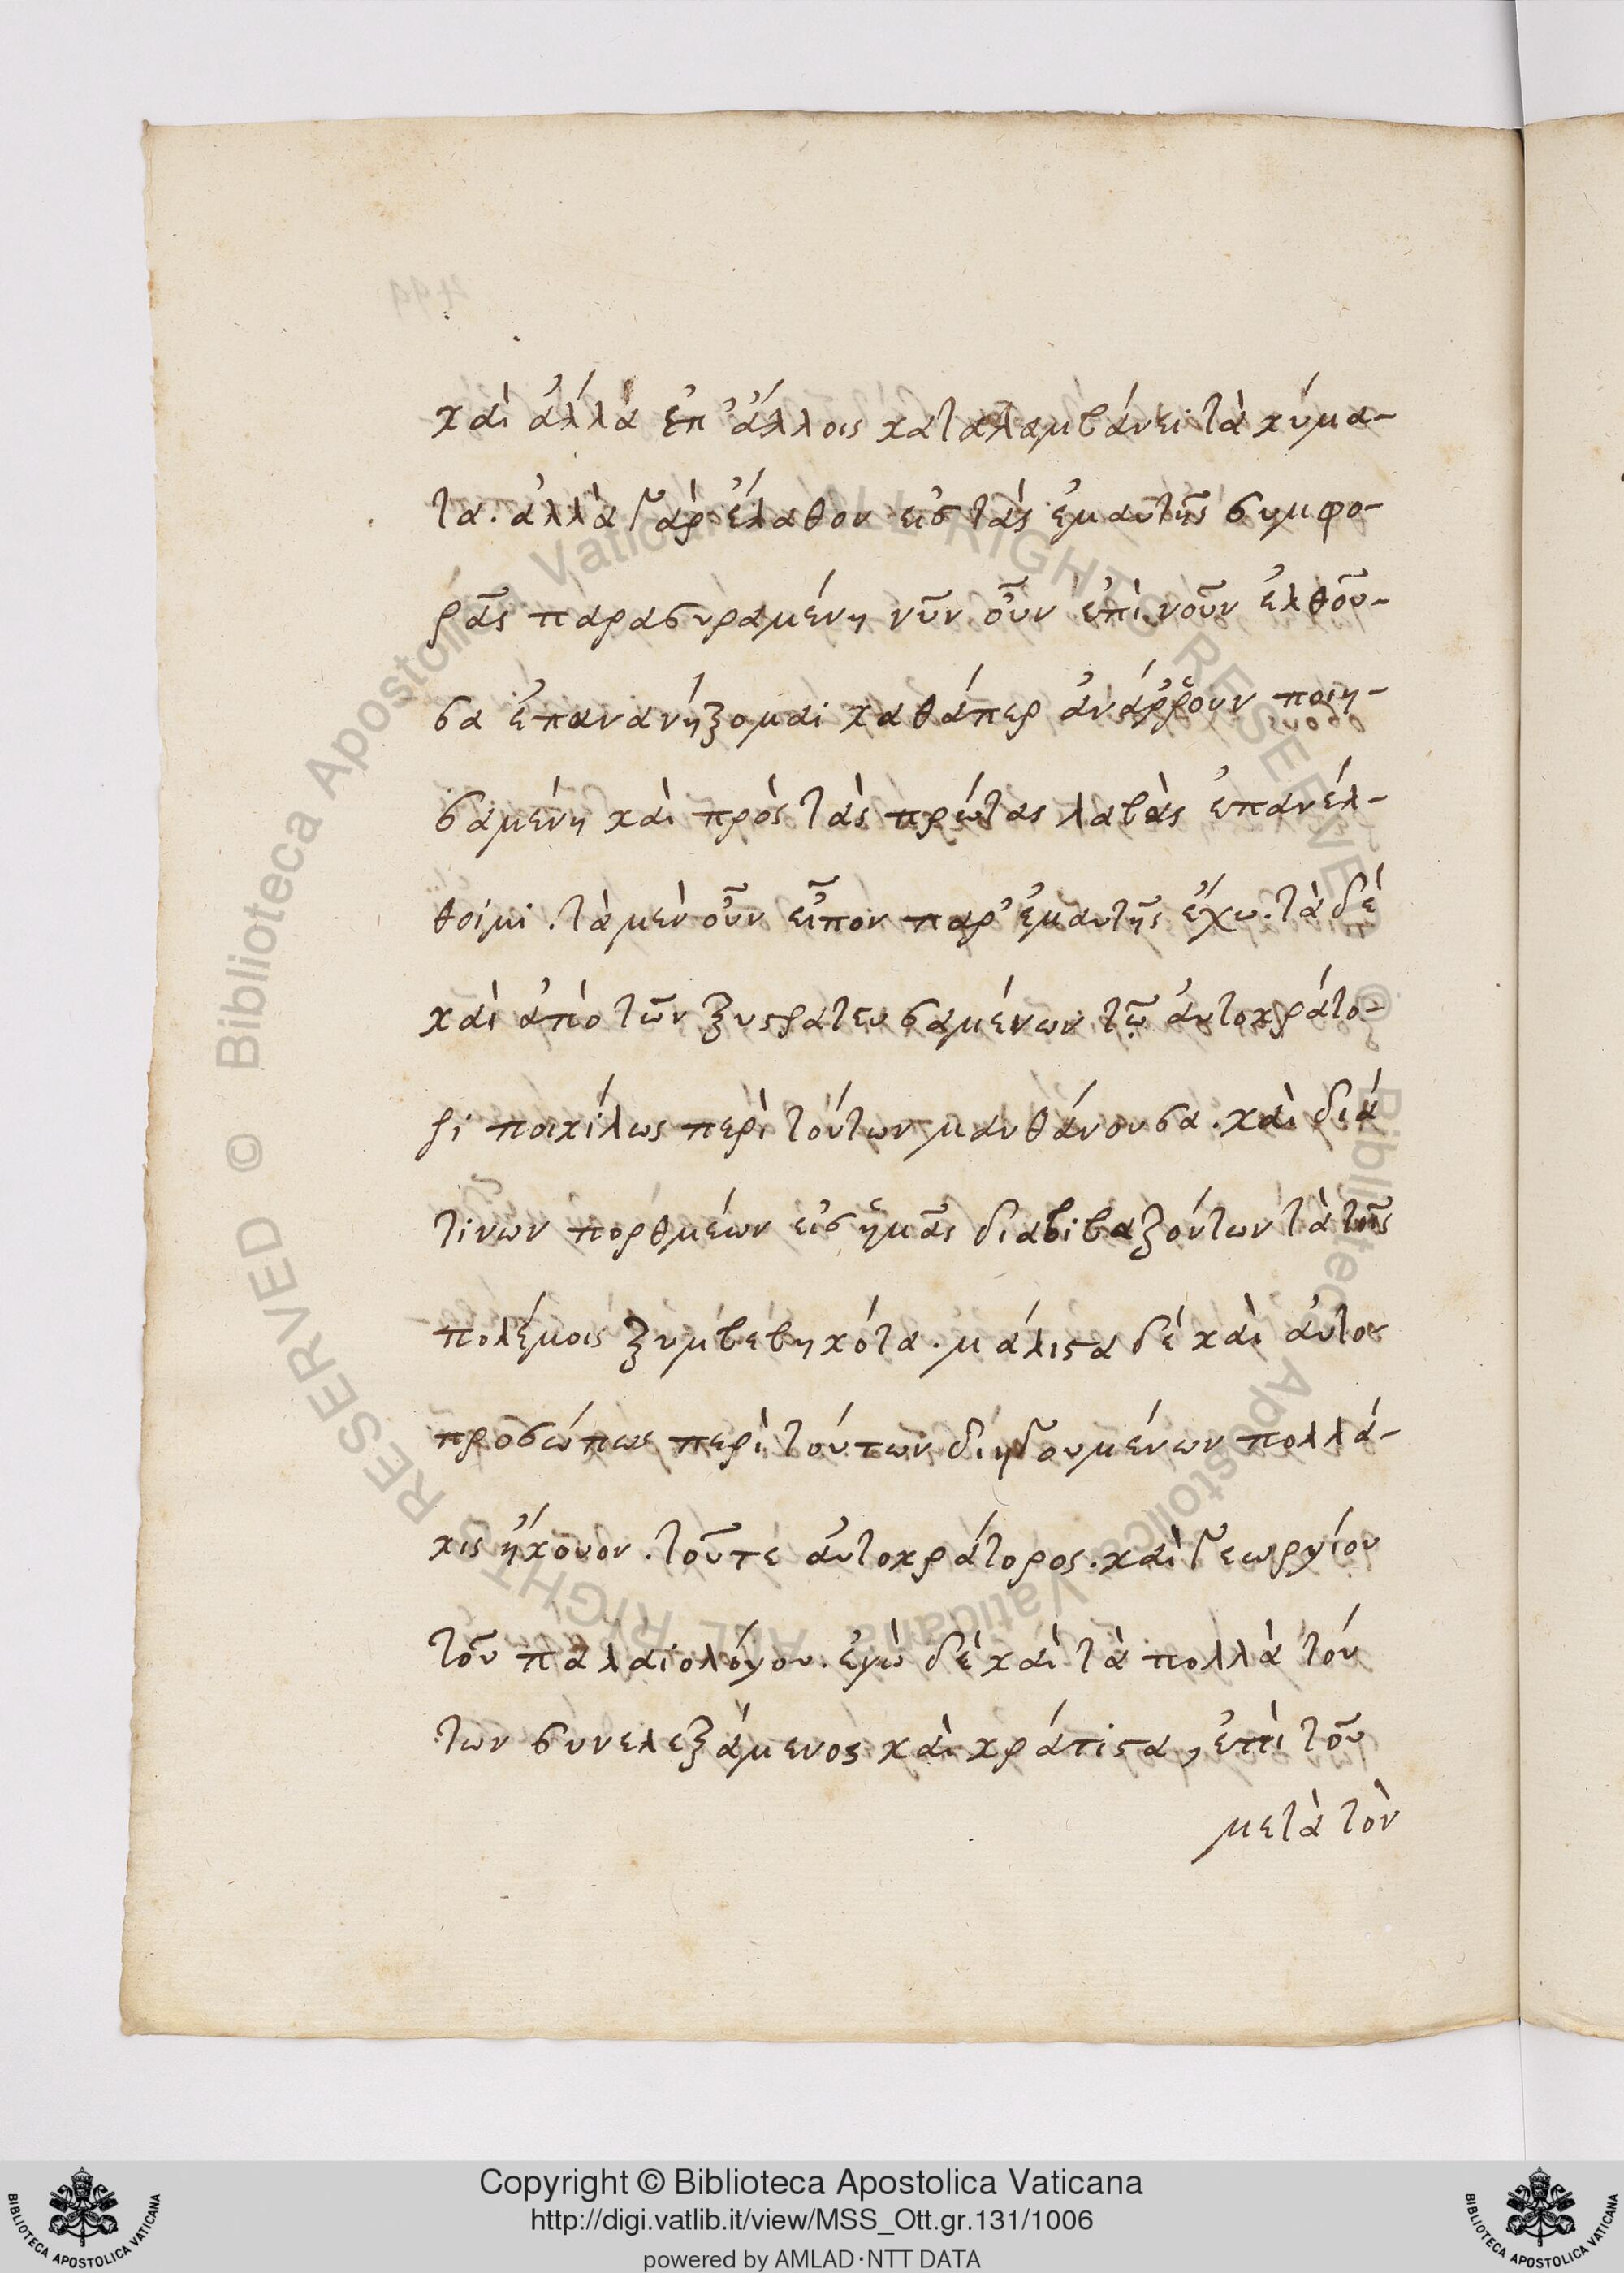 καὶ ἄλλα ἐπ' ἄλλοις καταλαμβάνει τὰ κύμα-
τα. ἀλλὰ γὰρ ἔλαθον εἰς τὰς ἐμαυτῆς συμφο-
ρᾶς παρασυραμένη νῦν οὖν ἐπὶ νοῦν ἐλθοῦ-
σα ἐπανανήξομαι καθάπερ ἀνάῤῥουν ποιη-
σαμένη καὶ πρὸς τὰς πρώτας λαβὰς ἐπανέλ-
θοιμι. τὰ μὲν οὖν εἶπον παρ' ἐμαυτῆς ἔχω. τὰ δὲ
καὶ ἀπὸ τῶν ξυστρατευσαμένων τῷ ἀυτοκράτο-
ρι ποικίλως περὶ τούτων μανθάνουσα. καὶ διά
τινων πορθμέων εἰς ἡμᾶς διαβιβαζόντων τὰ τῆς
πολέμοις ξυμβεβηκότα. μάλιστα δὲ καὶ ἀυτο
προσώπως περὶ τούτων διηγουμένων πολλά-
κις ἤκουον. τοῦτε ἀυτοκράτορος. καὶ Γεωργίου
τοῦ παλαιολόγου. ἐγὼ δὲ καὶ τὰ πολλὰ τού
των συνελεξάμενος καὶ κράτιστα, ἐπὶ τοῦ
μετὰ τὸν
Copyright © Biblioteca Apostolica Vaticana
http://digi.vatlib.it/view/MSS_Ott.gr.131/1006
powered by AMLAD·NTT DATA
BIBLIOTECA APOSTOLICA VATICANA
BIBLIOTECA APOSTOLICA VATICANA
© Biblioteca Apostolica Vaticana ALL RIGHTS RESERVED © Biblioteca Apostolica Vaticana ALL RIGHTS RESERVED